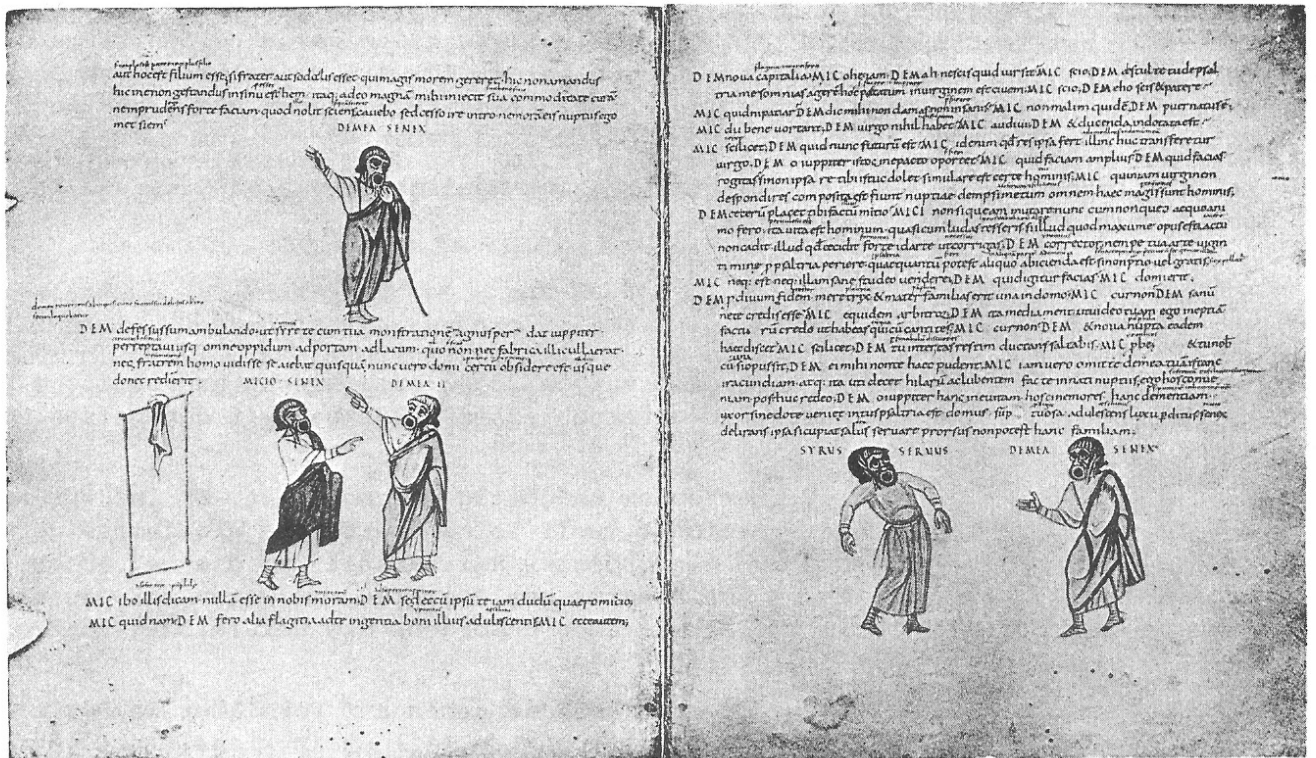 aut hoc est filium esse si frater aut sodalis esset qui magis morem gereret hic non amandus
hicine non gestandus in sinu est hem itaq; adeo magnā mihi iniecit sua commoditate curā
ne imprudens forte faciam quod nolit sciens cavebo sed cesso ire intro ne morae meis nuptiis ego
met siem
DEMEA SENEX
DEM defessus sum ambulando ut syre te cum tua monstratione magnus perdat iuppiter
perreptavi usq omne oppidum ad portam ad lacum quo non nec fabrica illic ulla erat
nec fratrem homo vidisse se aiebat quisquā nunc vero domi certū obsidere est usque
donec redierit
MICIO SENEX DEMEA II
MIC ibo illis dicam nullā esse in nobis moram DEM sed eccū ipsū te iam dudū quaero micio
MIC quidnam DEM fero alia flagitia ad te ingentia boni illius adulescentis MIC ecce autem
DEM nova capitalia MIC ohe iam DEM ah nescis qui vir sit MIC scio DEM o stulte tu de psal
tria me somnias agere hoc peccatum in virginem est civem MIC scio DEM eho scis & patere
MIC quidni patiar DEM dic mihi non clamas non insanis MIC non malim quidē DEM puer natus ē
MIC di bene vortant DEM virgo nihil habet MIC audivi DEM & ducenda indotata est
MIC scilicet DEM quid nunc futurū est MIC id enim qd res ipsa fert illinc huc transferetur
virgo DEM o iuppiter istocine pacto oportet MIC quid faciam amplius DEM quid facias
rogitas si non ipsa re tibi istuc dolet simulare est certe hominis MIC quin iam virginem
despondi res composita est fiunt nuptiae dempsi metum omnem haec magis sunt hominis
DEM ceterū placet tibi factū micio MICI non si queam mutare nunc cum non queo aequo ani
mo fero ita vita est hominum quasi cum ludas tesseris si illud quod maxume opus est iactu
non cadit illud qd cecidit forte id arte ut corrigas DEM corrector nempe tua arte vigin
ti minae p psaltria periere quae quantū potest aliquo abicienda est si non ptio vel gratis
MIC neq; est neq; illam sane studeo vendere DEM quid igitur facias MIC domi erit
DEM p divium fidem meretrix & mater familias erit una in domo MIC cur non DEM sanū
ne te credis esse MIC equidem arbitror DEM ita me di ament ut video tuam ego ineptiā
facturū credo ut habeas quicū cantites MIC cur non DEM & nova nupta eadem
haec discet MIC scilicet DEM tu inter eas restim ductans saltabis MIC pbe & tu nob
cū si opus sit DEM ei mihi non te haec pudent MIC iam vero omitte demea tuā istanc
iracundiam atq; ita uti decet hilarū ac lubentem fac te in nati nuptiis ego hos conve
niam post huc redeo DEM o iuppiter hanc ine vitam hoscine mores hanc dementiam
uxor sine dote veniet intus psaltria est domus sūptuosa adulescens luxu pditus senex
delirans ipsa si cupiat salus servare prorsus non potest hanc familiam
SYRUS SERVUS DEMEA SENEX